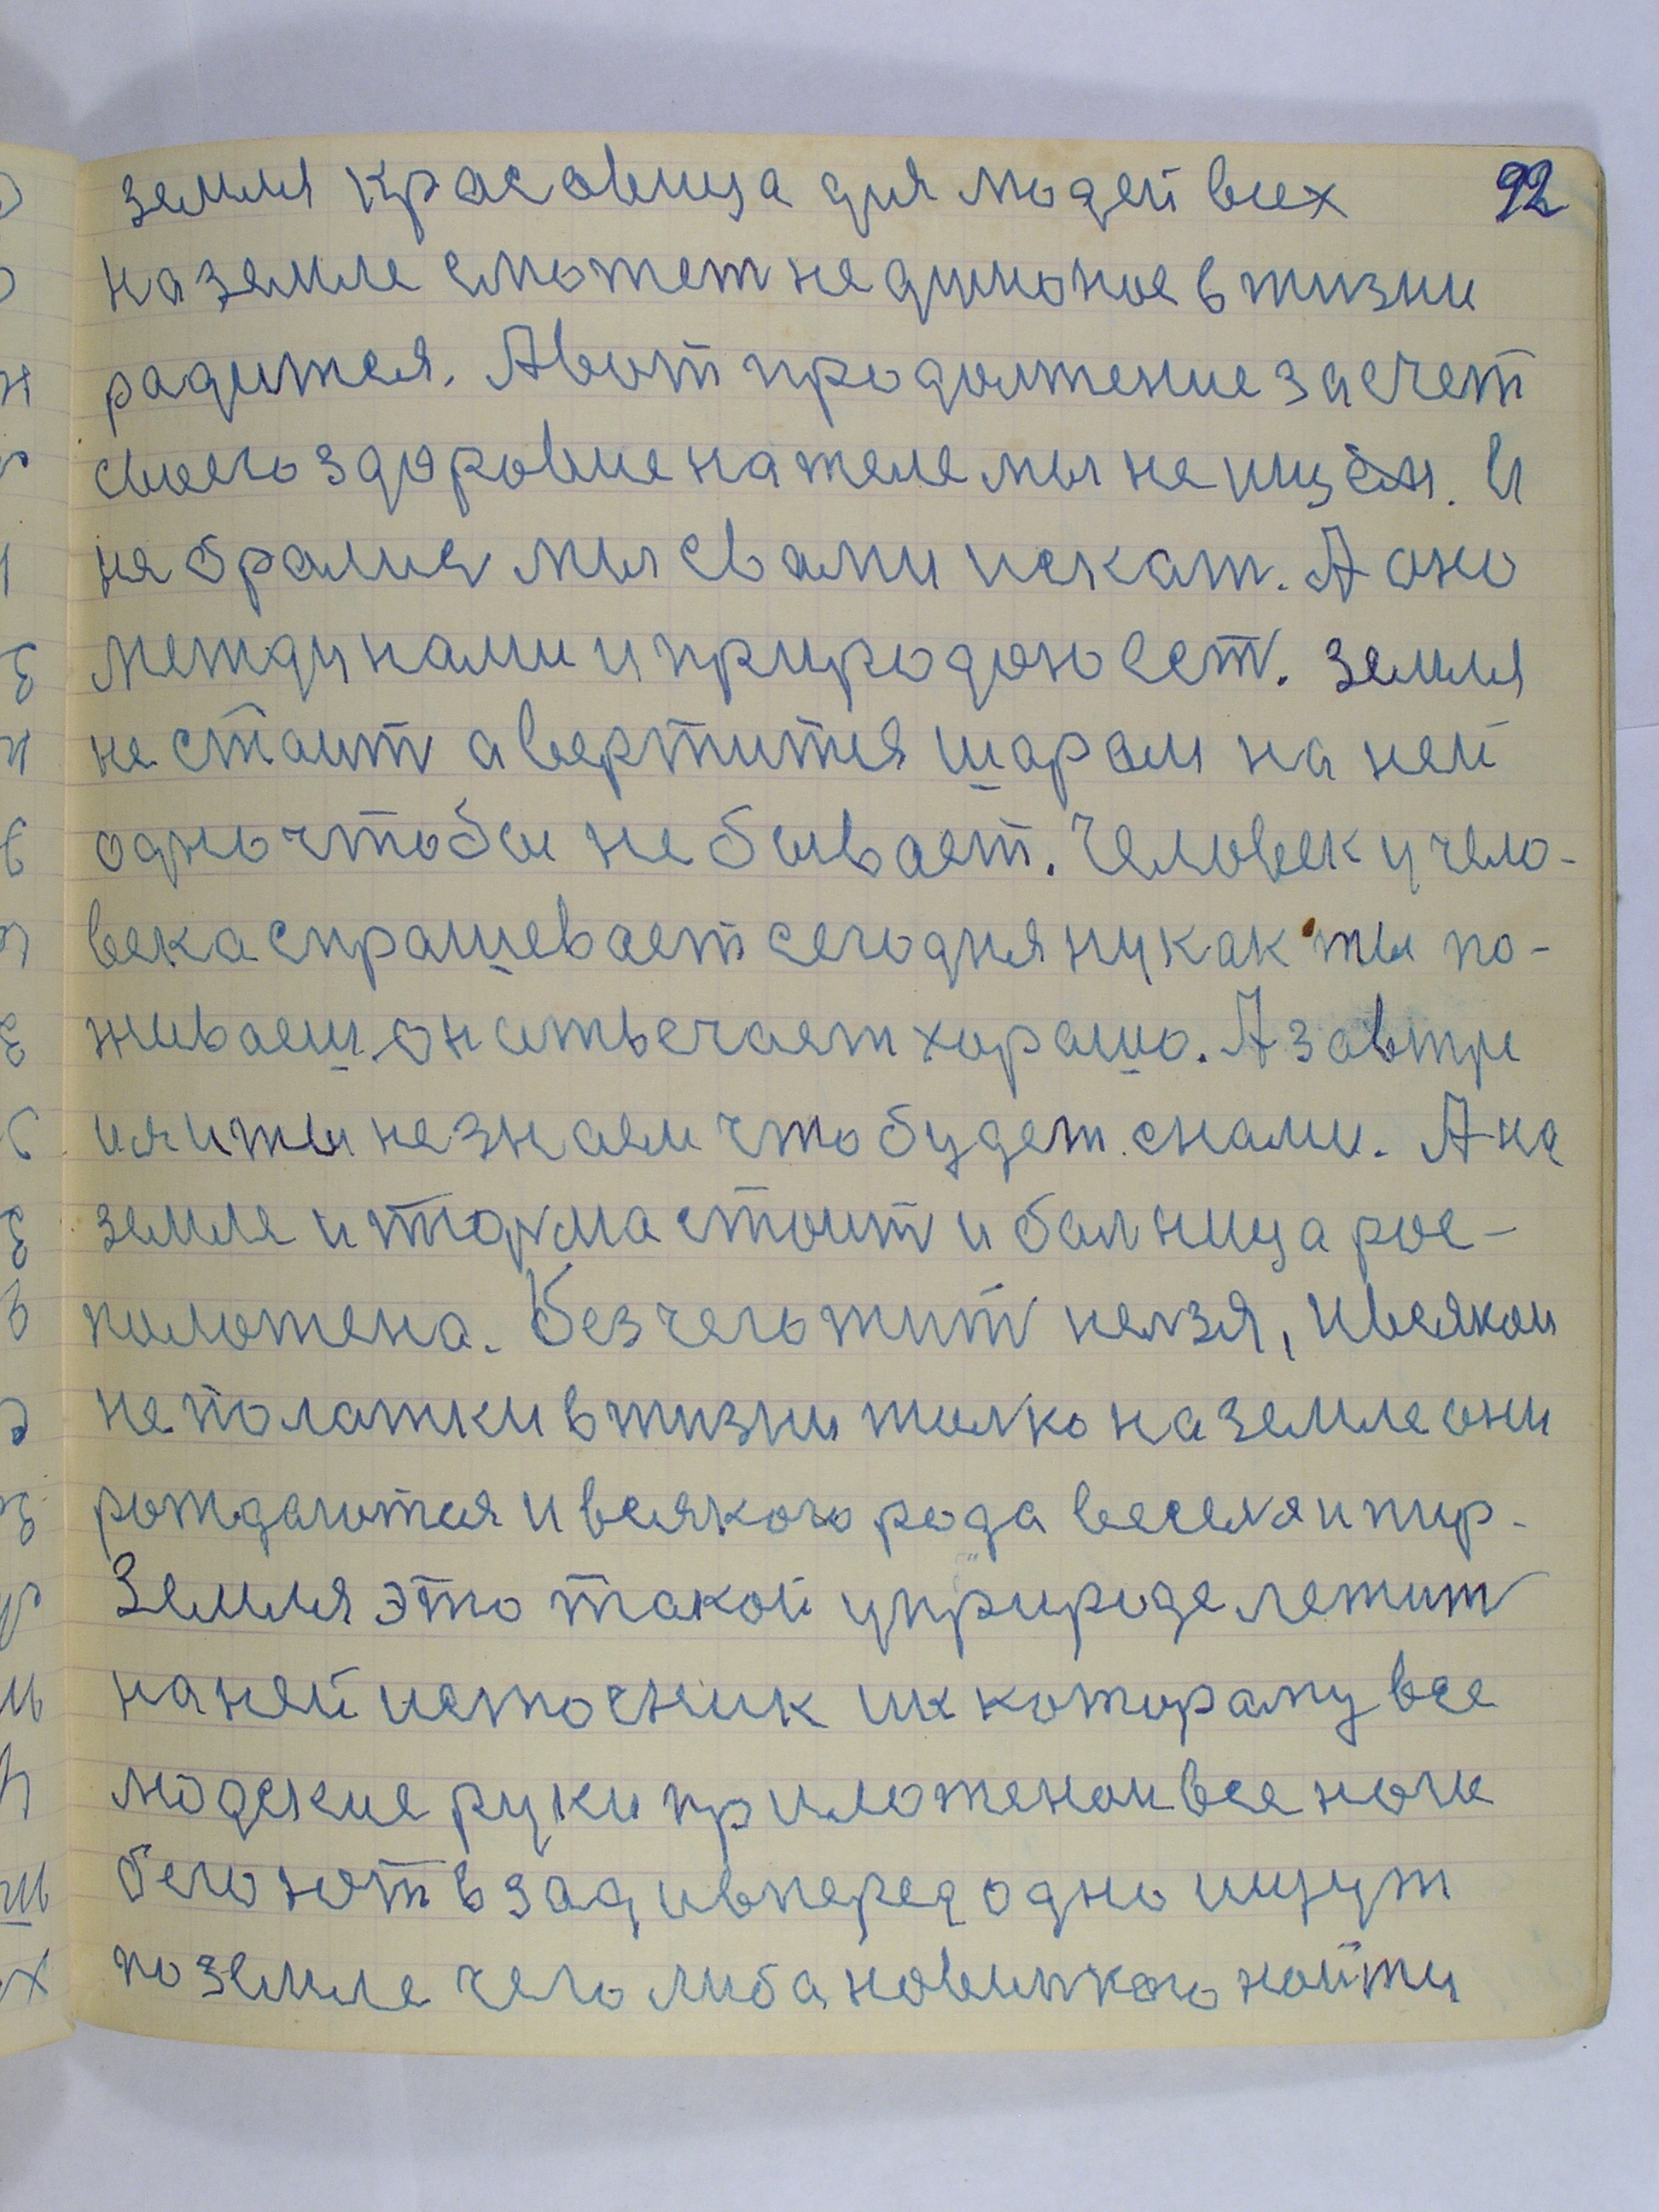 земля красавица для людей всех 92
на земле сможет недуманое в жизни
радится. А вот продолжение за счет
своего здоровие на теле мы не ищем. И
не брались мы с вами искат. А оно
между нами и природою ест. Земля
не стоит а вертится шаром на ней
одно чтобы не бывает. Человек у чело-
века спрашевает сегодня ну как ты по-
живаеш он отвечает хорашо. А завтре
и я и ты не знаем что будет снами. А на
земле и тюрма стоит и балница рас-
положена. Без чего жит нелзя, и всякои
неполатки в жизни толко на земле они
рождаются и всякого рода веселя и пир.
Земля это такой у природе лежит
на ней источник ик которому все
людские руки приложенаи все ноги
бегают взад и вперед одно ищут
по земле чего либа новинкого найти